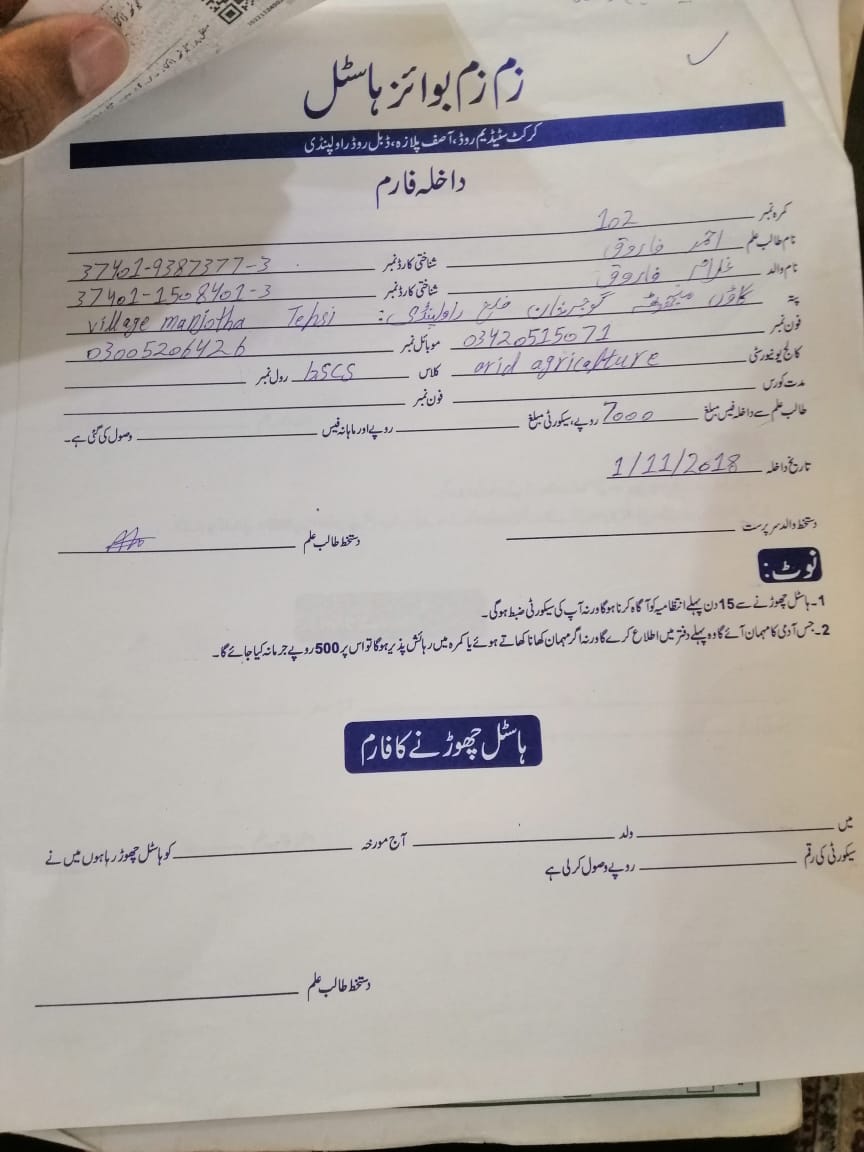 زم زم بوائز ہاسٹل
کرکٹ سٹیڈیم روڈ، آصف پلازہ، ڈبل روڈ راولپنڈی
داخلہ فارم
کمرہ نمبر 102
نام طالب علم احمد فاروق شناختی کارڈ نمبر 37401-9387377-3
نام والد غلام فاروق شناختی کارڈ نمبر 37401-1508401-3
پتہ گاؤں گوجرخان ضلع راولپنڈی: village manjotha Tehsi
فون نمبر 03420515071 موبائل نمبر 03005206426
کالج یونیورسٹی arid agriculture کلاس bscs رول نمبر
مدت کورس فون نمبر
طالب علم سے داخلہ فیس مبلغ 7000 روپے، سیکورٹی مبلغ روپے اور ماہانہ فیس وصول کی گئی ہے۔
تاریخ داخلہ 1/11/2018
دستخط والد سرپرست دستخط طالب علم
نوٹ:
1۔ ہاسٹل چھوڑنے سے 15 دن پہلے انتظامیہ کو آگاہ کرنا ہوگا ورنہ آپ کی سیکورٹی ضبط ہوگی۔
2۔ جس آدمی کا مہمان آئے گا وہ پہلے دفتر میں اطلاع کرے گا ورنہ اگر مہمان کھانا کھاتے ہوئے یا کمرہ میں رہائش پذیر ہوگا تو اس پر 500 روپے جرمانہ کیا جائے گا۔
ہاسٹل چھوڑنے کا فارم
میں ولد آج مورخہ کو ہاسٹل چھوڑ رہا ہوں میں نے
سیکورٹی کی رقم روپے وصول کرلی ہے
دستخط طالب علم